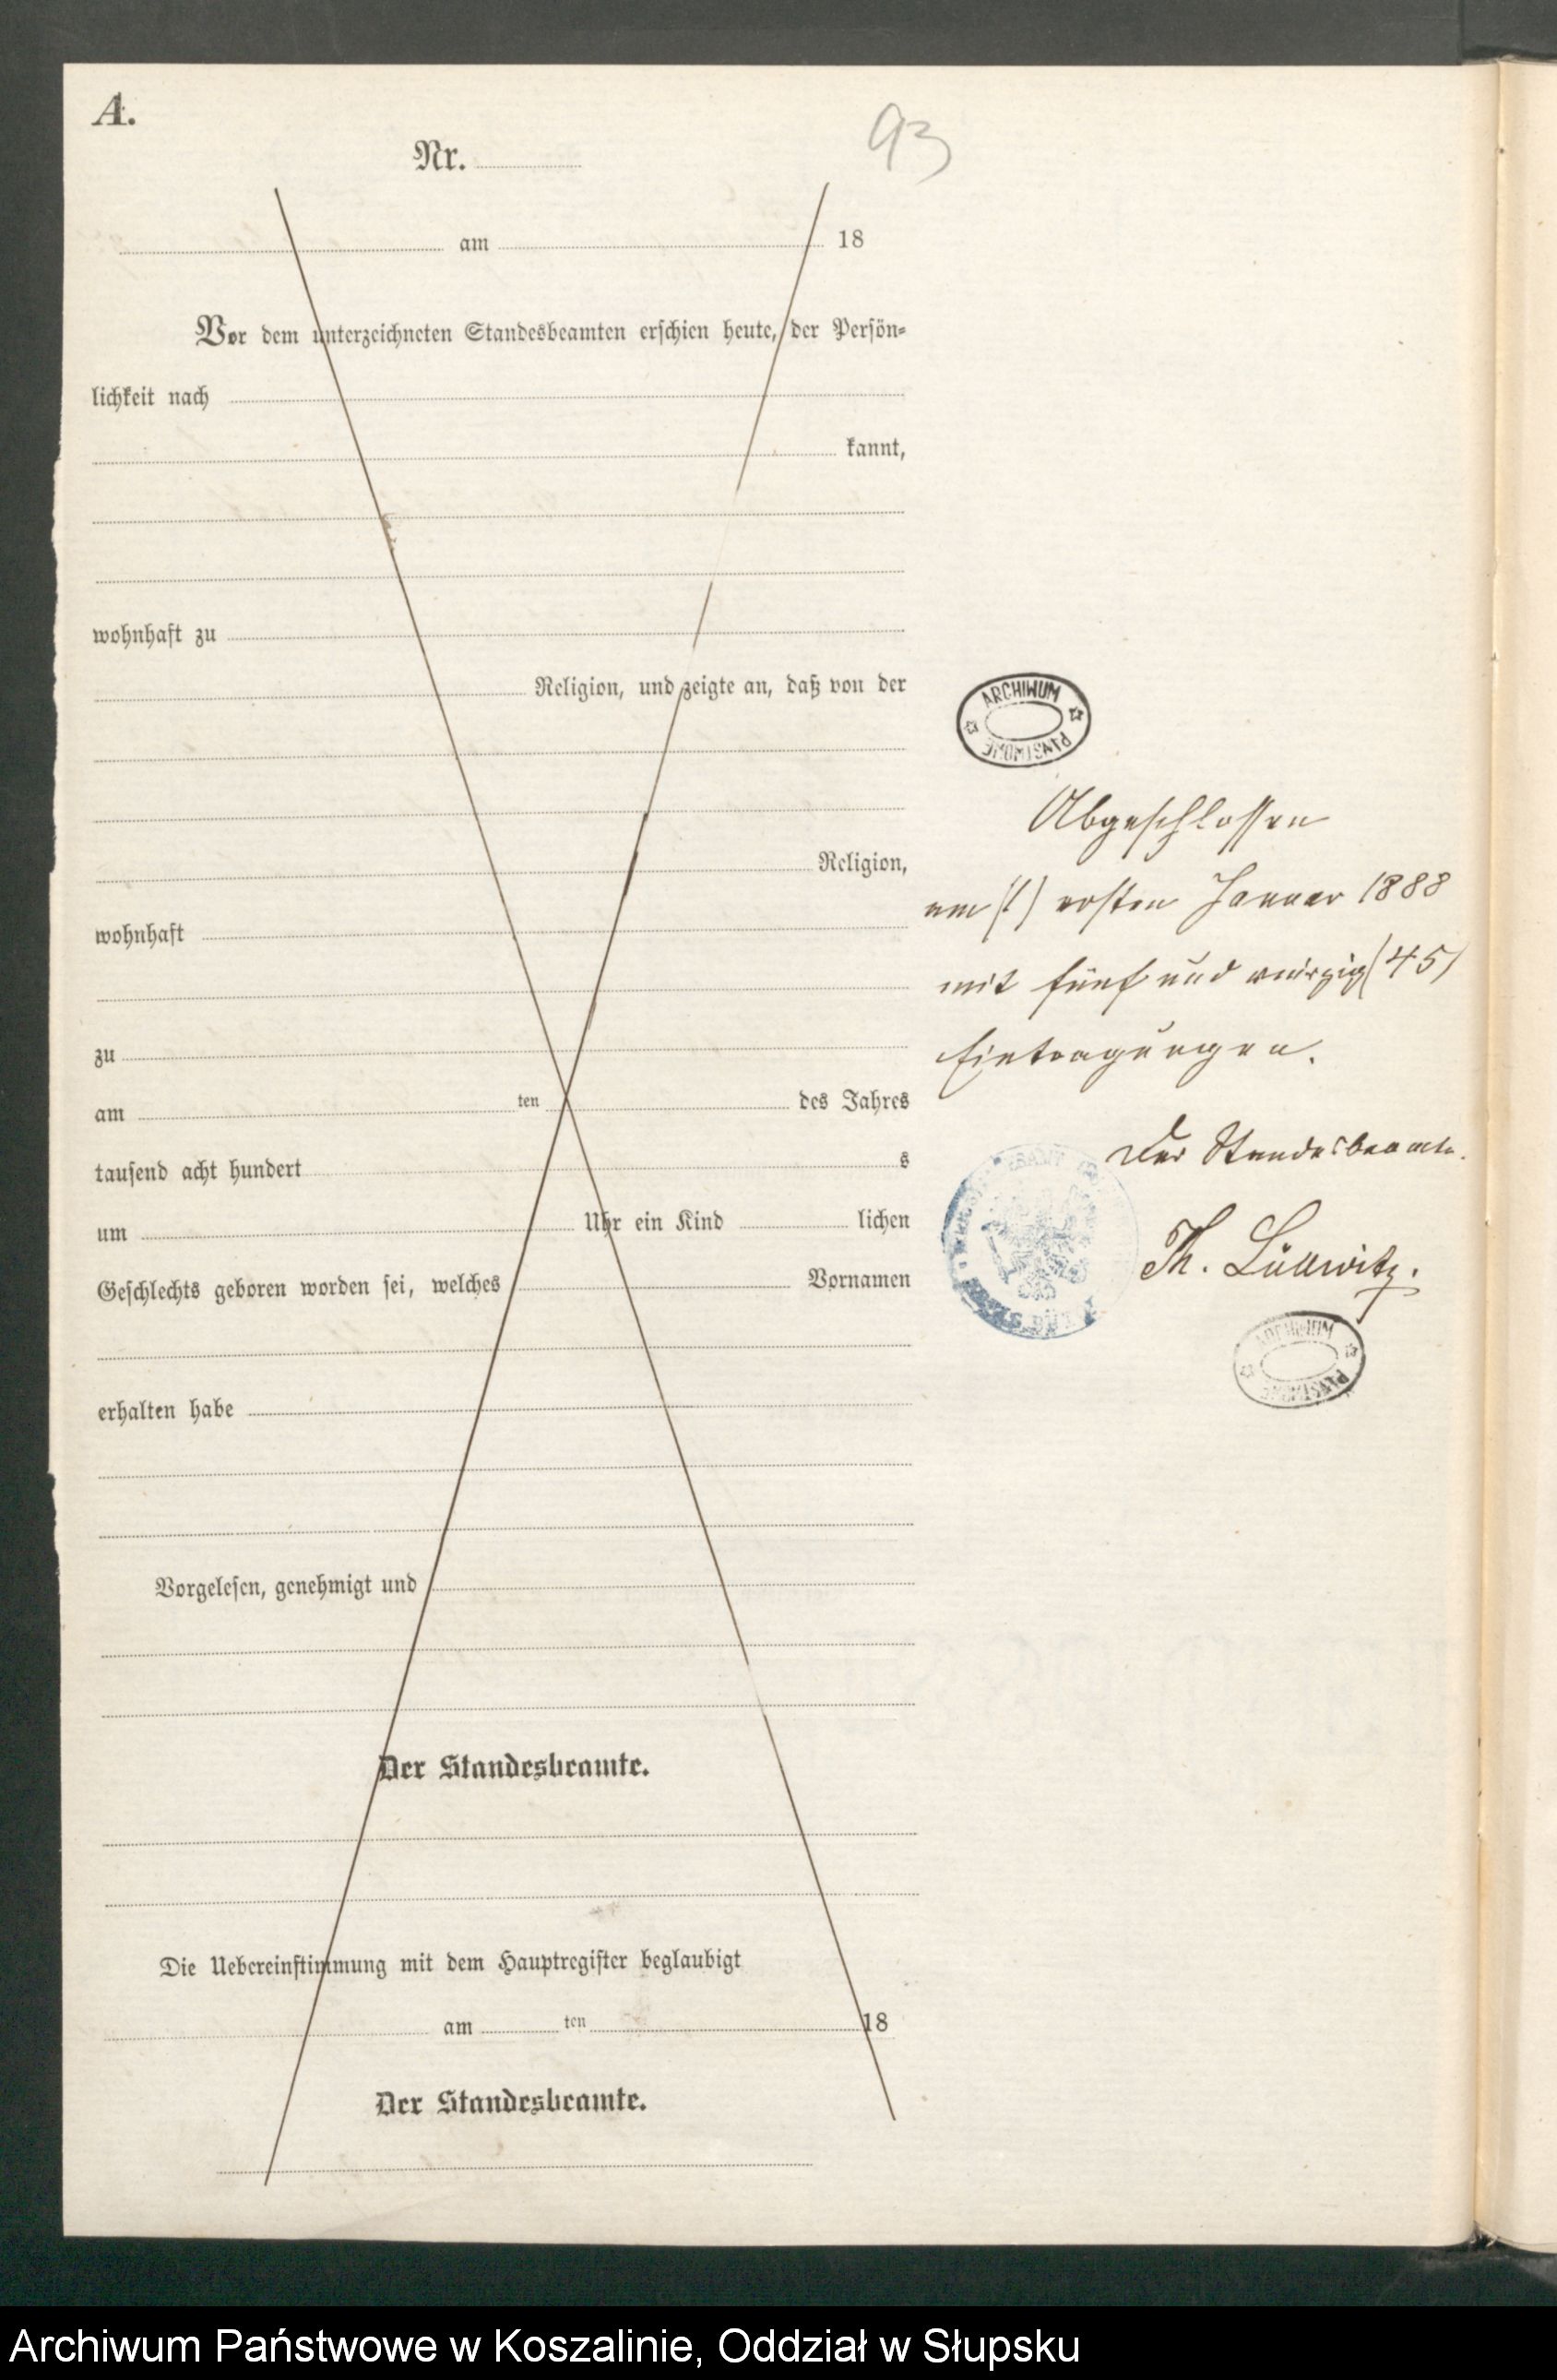 A.
Nr.
93
am 18
Vor dem unterzeichneten Standesbeamten erschien heute, der Persön=
lichkeit nach
kannt,
wohnhaft zu
Religion, und zeigte an, daß von der
Religion,
wohnhaft
zu
am ten des Jahres
tausend acht hundert s
um Uhr ein Kind lichen
Geschlechts geboren worden sei, welches Vornamen
erhalten habe
Vorgelesen, genehmigt und
Der Standesbeamte.
Die Uebereinstimmung mit dem Hauptregister beglaubigt
am ten 18
Der Standesbeamte.
ARCHIWUM
PAŃSTWOWE
Abgeschlossen
am (1) ersten Januar 1888
mit fünf und vierzig (45)
Eintragungen.
Der Standesbeamte.
Th. Lüllwitz.
ARCHIWUM
PAŃSTWOWE
Archiwum Państwowe w Koszalinie, Oddział w Słupsku